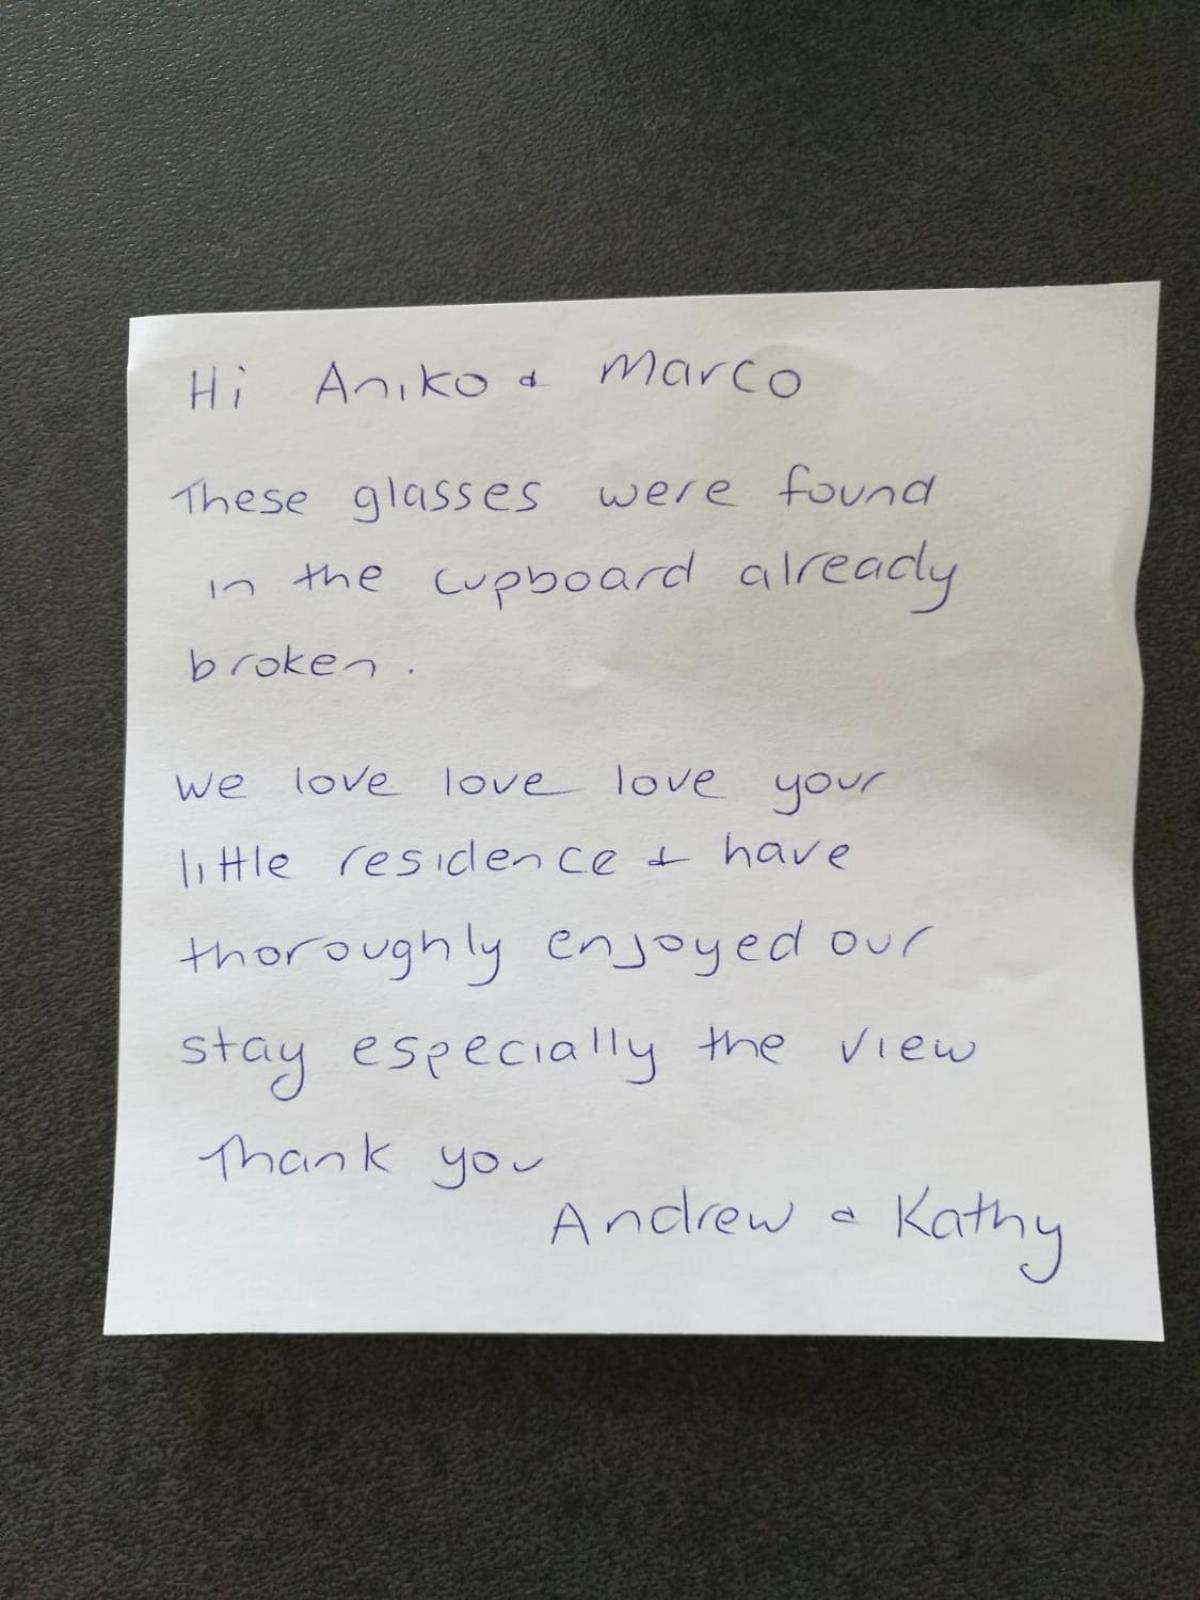 Hi Aniko & Marco
These glasses were found
in the cupboard already
broken.
We love love love your
little residence & have
thoroughly enjoyed our
stay especially the view
Thank you
Andrew & Kathy